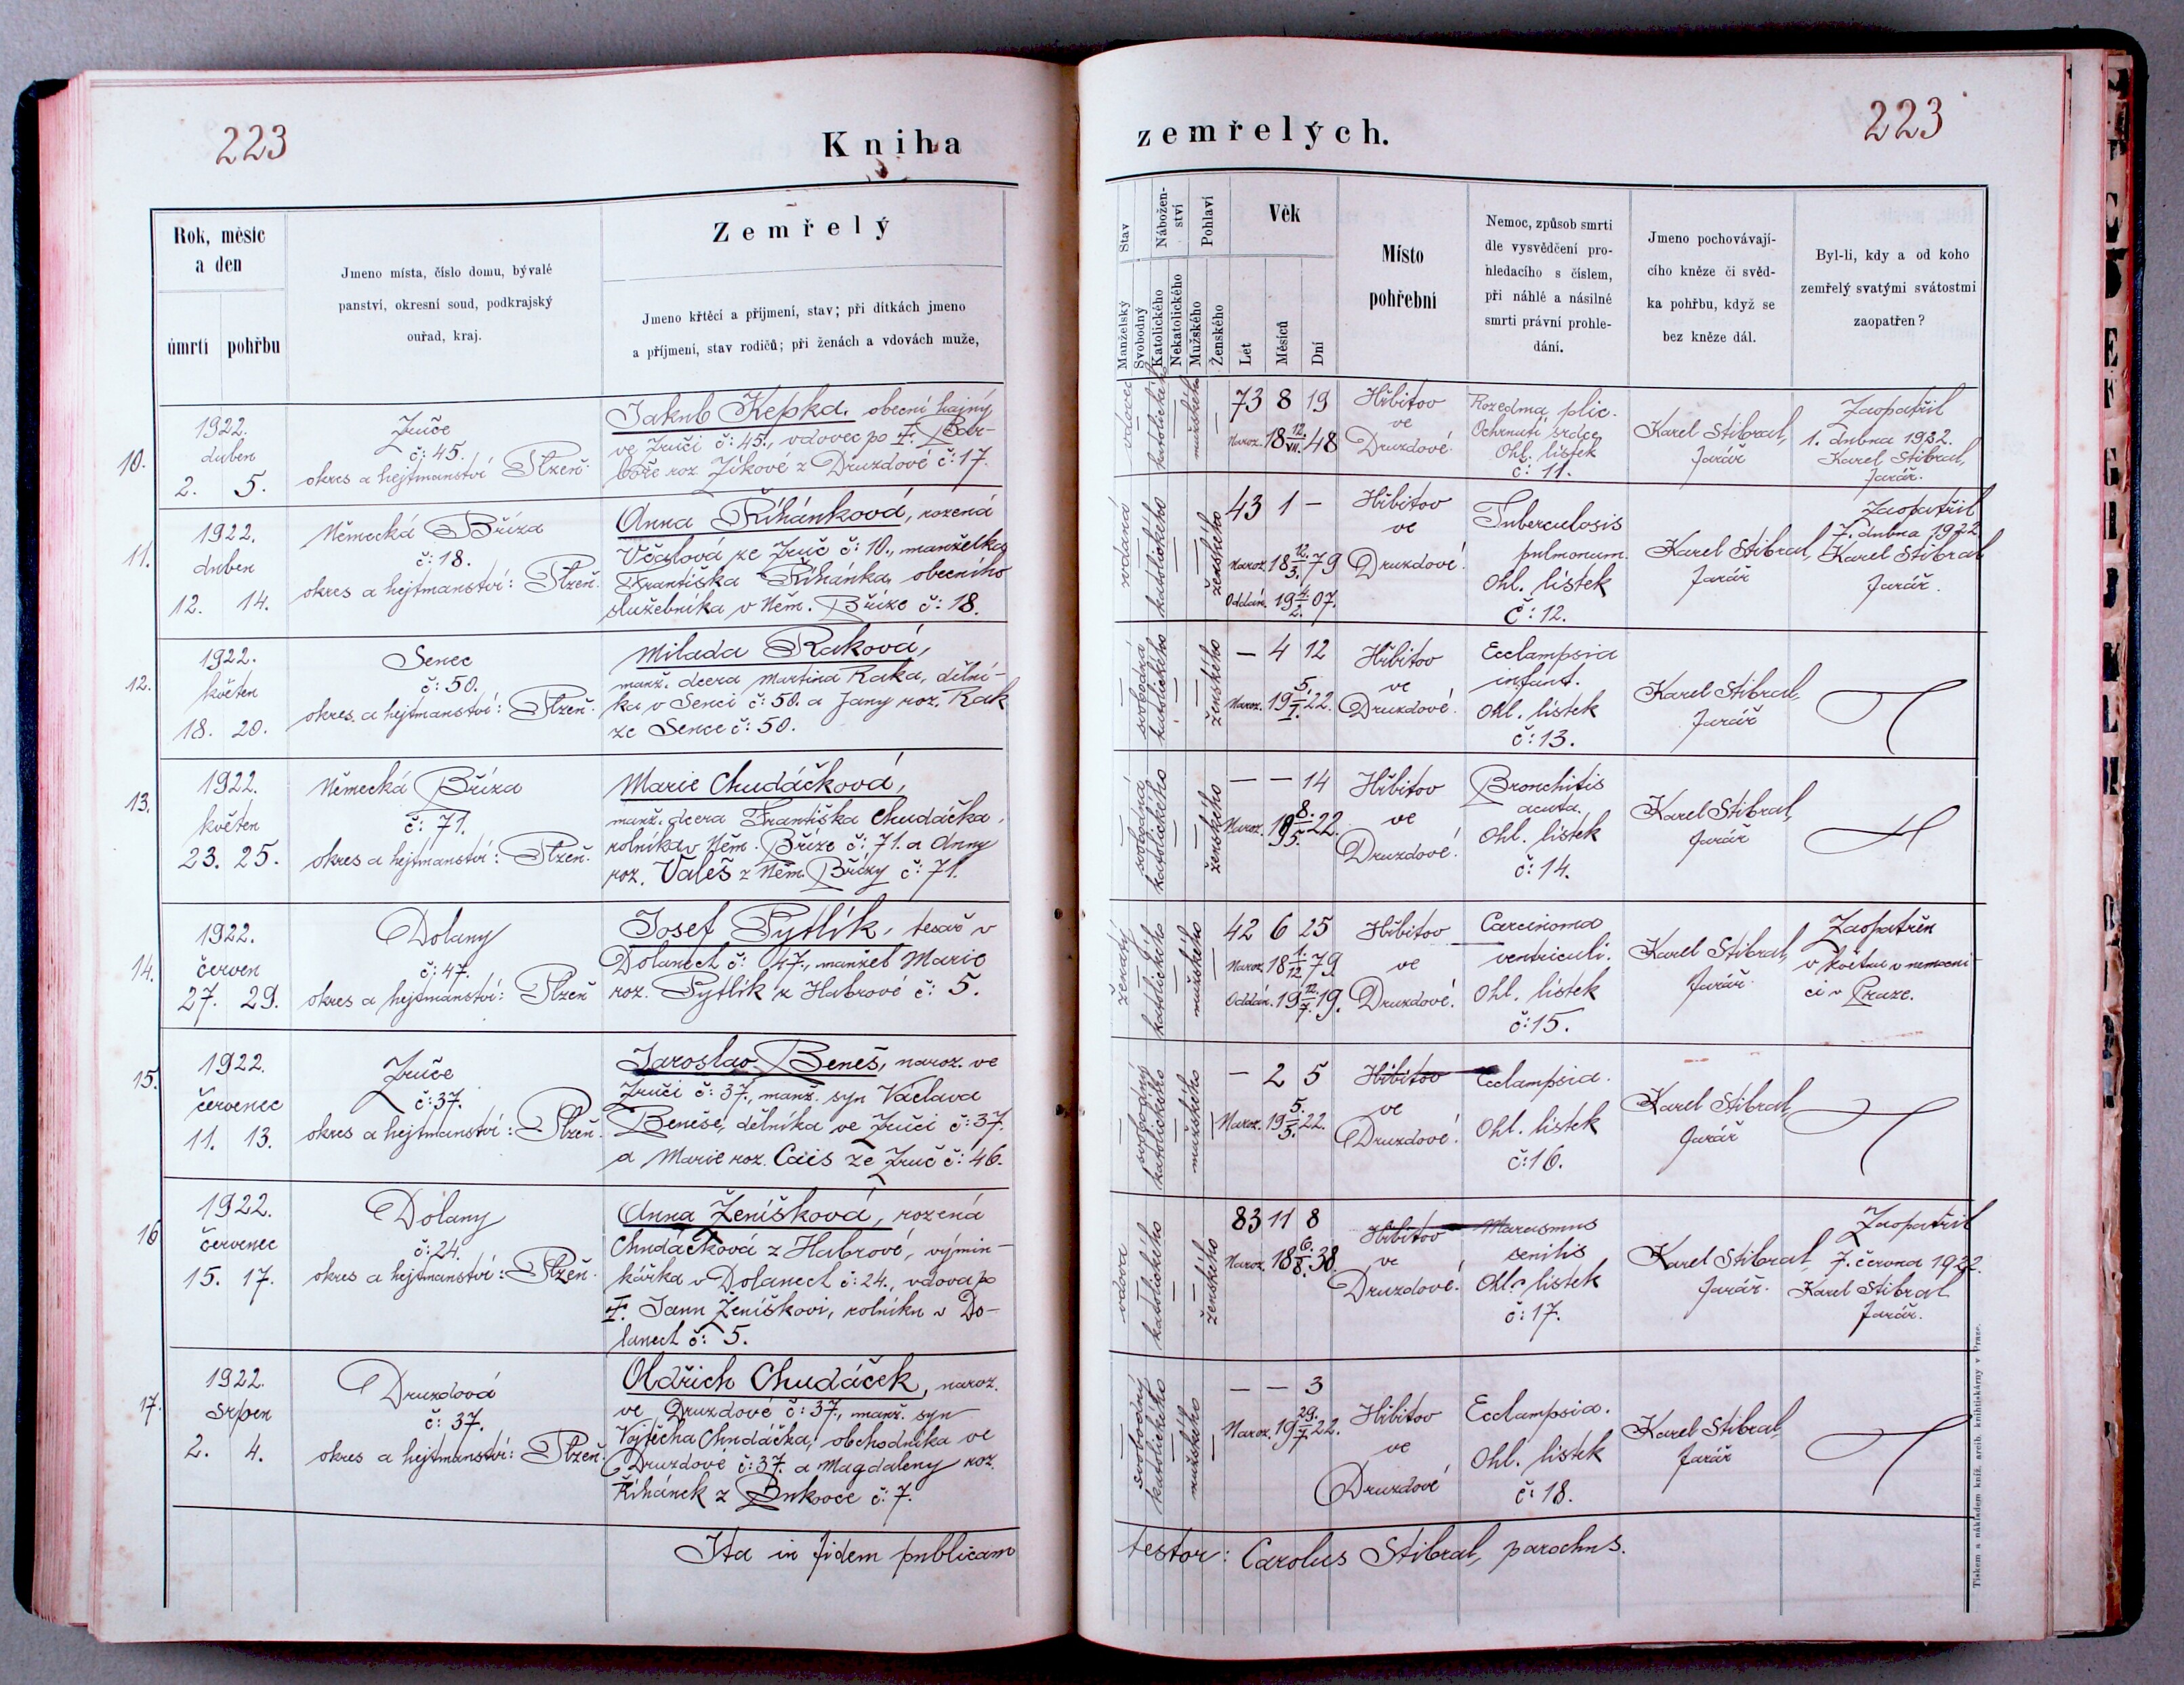 223
Kniha
Rok, měsíc
a den
úmrtí
pohřbu
Jmeno místa, číslo domu, bývalé
panství, okresní soud, podkrajský
ouřad, kraj.
Zemřelý
Jmeno křtěcí a příjmení, stav; při dítkách jmeno
a příjmení, stav rodičů; při ženách a vdovách muže,
10.
1922.
duben
2. 5.
Zruče
č: 45.
okres a hejtmanství Plzeň.
Jakub Kepka, obecní hajný
ve Zruči č: 45., vdovec po †. Bar-
boře roz. Zíkové z Druzdové č: 17.
11.
1922.
duben
12. 14.
Německá Bříza
č: 18.
okres a hejtmanství: Plzeň.
Anna Říhánková, rozená
Včalová ze Zruč č: 10., manželka
Františka Říhánka, obecního
služebníka v Něm. Bříze č: 18.
12.
1922.
květen
18. 20.
Senec
č: 50.
okres a hejtmanství: Plzeň.
Milada Raková,
manž. dcera Martina Raka, dělní-
ka v Senci č: 50. a Jany roz. Rak
ze Sence č: 50.
13.
1922.
květen
23. 25.
Německá Bříza
č: 71.
okres a hejtmanství: Plzeň.
Marie Chudáčková,
manž. dcera Františka Chudáčka,
rolníka v Něm. Bříze č: 71. a Anny
roz. Valeš z Něm. Břízy č: 71.
14.
1922.
červen
27. 29.
Dolany
č: 47.
okres a hejtmanství: Plzeň
Josef Pytlík, tesař v
Dolanech č: 47., manžel Marie
roz. Pytlík z Habrové č: 5.
15.
1922.
červenec
11. 13.
Zruče
č: 37.
okres a hejtmanství: Plzeň.
Jaroslav Beneš, naroz. ve
Zruči č: 37., manž. syn Václava
Beneše, dělníka ve Zruči č: 37.
a Marie roz. Cais ze Zruč č: 46.
16
1922.
červenec
15. 17.
Dolany
č: 24.
okres a hejtmanství: Plzeň.
Anna Ženíšková, rozená
Chudáčková z Habrové, výmin-
kářka v Dolanech č: 24., vdova po
†. Janu Ženíškovi, rolníku v Do-
lanech č: 5.
17.
1922.
srpen
2. 4.
Druzdová
č: 37.
okres a hejtmanství: Plzeň.
Oldřich Chudáček, naroz.
ve Druzdové č: 37., manž. syn
Vojtěcha Chudáčka, obchodníka ve
Druzdové č: 37. a Magdaleny roz.
Říhánek z Bukovce č: 7.
Ita in fidem publicam
223
zemřelých.
Stav
Manželský
Svobodný
Nábožen-
ství
Katolického
Nekatolického
Pohlaví
Mužského
Ženského
Věk
Let
Měsíců
Dní
Místo
pohřební
Nemoc, způsob smrti
dle vysvědčení pro-
hledacího s číslem,
při náhlé a násilné
smrti právní prohle-
dání.
Jmeno pochovávají-
cího kněze či svěd-
ka pohřbu, když se
bez kněze dál.
Byl-li, kdy a od koho
zemřelý svatými svátostmi
zaopatřen?
vdovec
katolického
mužského
73 8 19
Naroz. 18 12./VII. 48
Hřbitov
ve
Druzdové.
Rozedma plic.
Ochrnutí srdce
Ohl. lístek
č: 11.
Karel Stibral,
farář
Zaopatřil
1. dubna 1922.
Karel Stibral,
farář.
vdaná
katolického
ženského
43 1 —
Naroz. 18 12./3. 79
Oddán. 19 4./2. 07.
Hřbitov
ve
Druzdové.
Tuberculosis
pulmonum.
Ohl. lístek
č: 12.
Karel Stibral,
farář
Zaopatřil
7. dubna 1922
Karel Stibral
farář.
svobodná
katolického
ženského
— 4 12
Naroz. 19 5./I. 22.
Hřbitov
ve
Druzdové.
Ecclampsia
infant.
Ohl. lístek
č: 13.
Karel Stibral,
farář
svobodná
katolického
ženského
— — 14
Naroz. 19 8./5. 22.
Hřbitov
ve
Druzdové.
Bronchitis
acuta.
Ohl. lístek
č: 14.
Karel Stibral,
farář
ženatý
katolického
mužského
42 6 25
Naroz. 18 1./12 79
Oddán. 19 12./7. 19.
Hřbitov
ve
Druzdové.
Carcinoma
ventriculi.
Ohl. lístek
č: 15.
Karel Stibral,
farář.
Zaopatřen
v květnu v nemocni-
ci v Praze.
svobodný
katolického
mužského
— 2 5
Naroz. 19 5./5. 22.
Hřbitov
ve
Druzdové.
Ecclampsia.
Ohl. lístek
č: 16.
Karel Stibral,
farář
vdova
katolického
ženského
83 11 8
Naroz. 18 6./8. 38.
Hřbitov
ve
Druzdové.
Marasmus
senilis
Ohl. lístek
č: 17.
Karel Stibral,
farář.
Zaopatřil
7. června 1922.
Karel Stibral
farář.
svobodný
katolického
mužského
— — 3
Naroz. 19 29./7. 22.
Hřbitov
ve
Druzdové
Ecclampsia.
Ohl. lístek
č: 18.
Karel Stibral,
farář
testor: Carolus Stibral, parochus.
Tiskem a nákladem kníž. arcib. knihtiskárny v Praze.